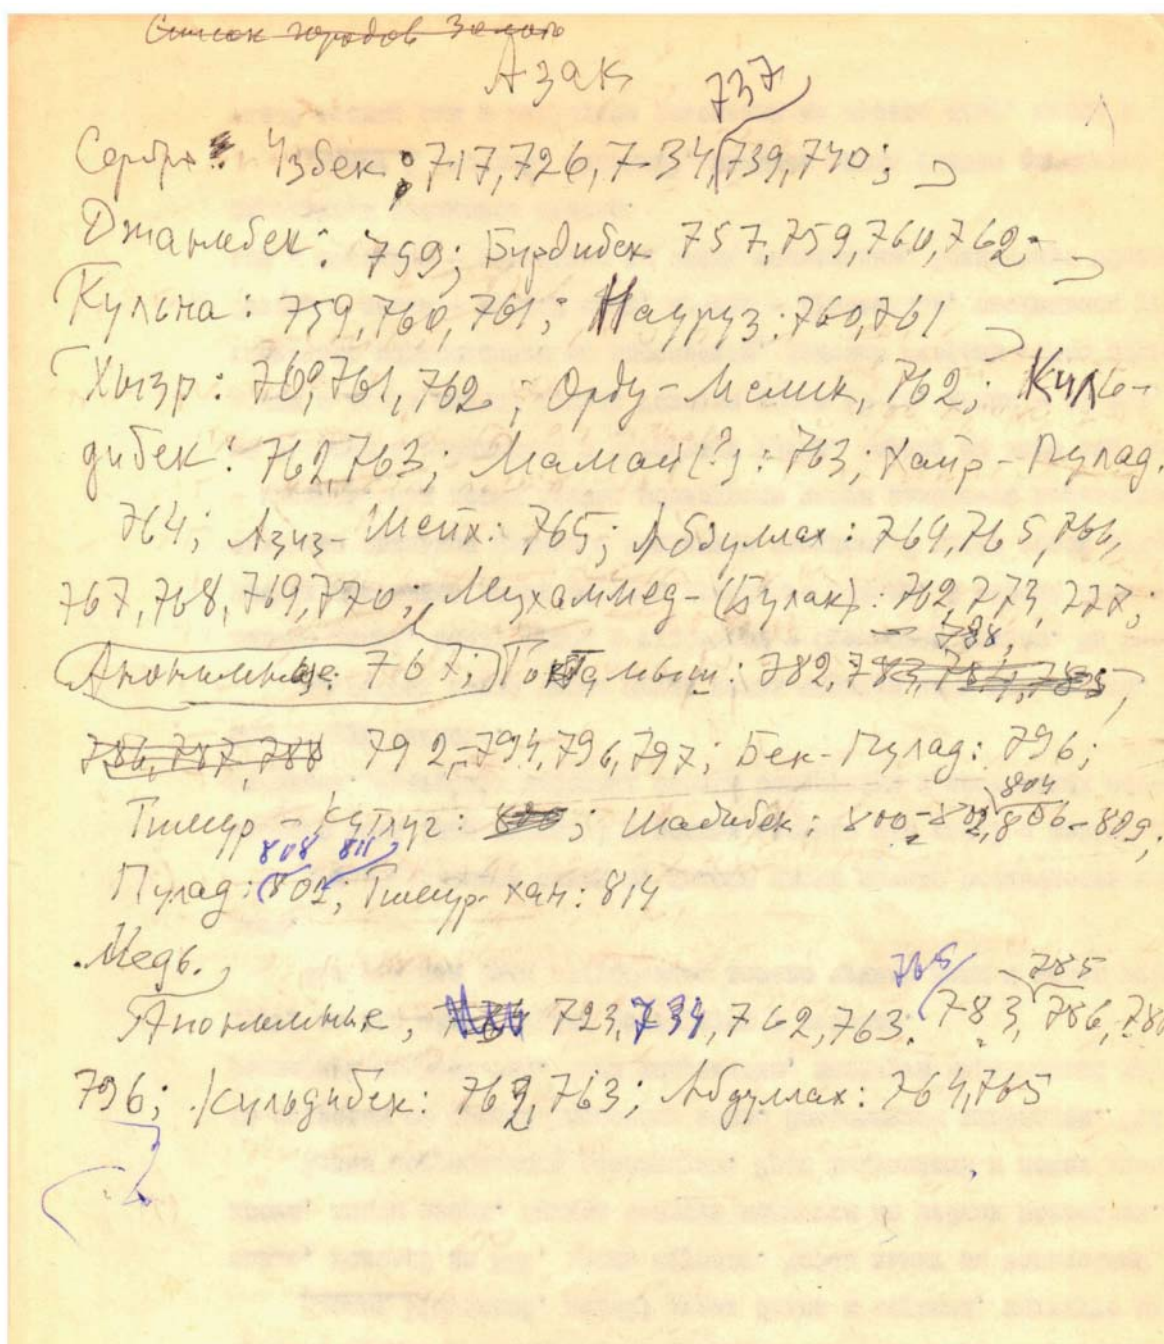 Список городов Золото
Азак
737
Серебро: Узбек: 717, 726, 734, 739, 740;
Джанибек: 759; Бирдибек 757, 759, 760, 762;
Кульна: 759, 760, 761; Науруз: 760, 761
Хызр: 760, 761, 762; Орду-Мелик, 762; Киль-
дибек: 762, 763; Мамай(?): 763; Хайр-Пулад.
764; Азиз-Шейх: 765; Абдуллах: 764, 765, 766,
767, 768, 769, 770; Мухаммед-(Булак): 762, 773, 777;
788,
Анонимные: 767; Токтамыш: 782, 783, 784, 785,
786, 787, 788 792-794, 796, 797; Бек-Пулад: 796;
804
Тимур-Кутлуг: 800; Шадибек: 800-802, 806-809,
808 811
Пулад: 802; Тимур-хан: 814
Медь.
765 785
Анонимные, 723, 734, 762, 763. 783, 786, 788
796; Кульдибек: 762, 763; Абдуллах: 764, 765